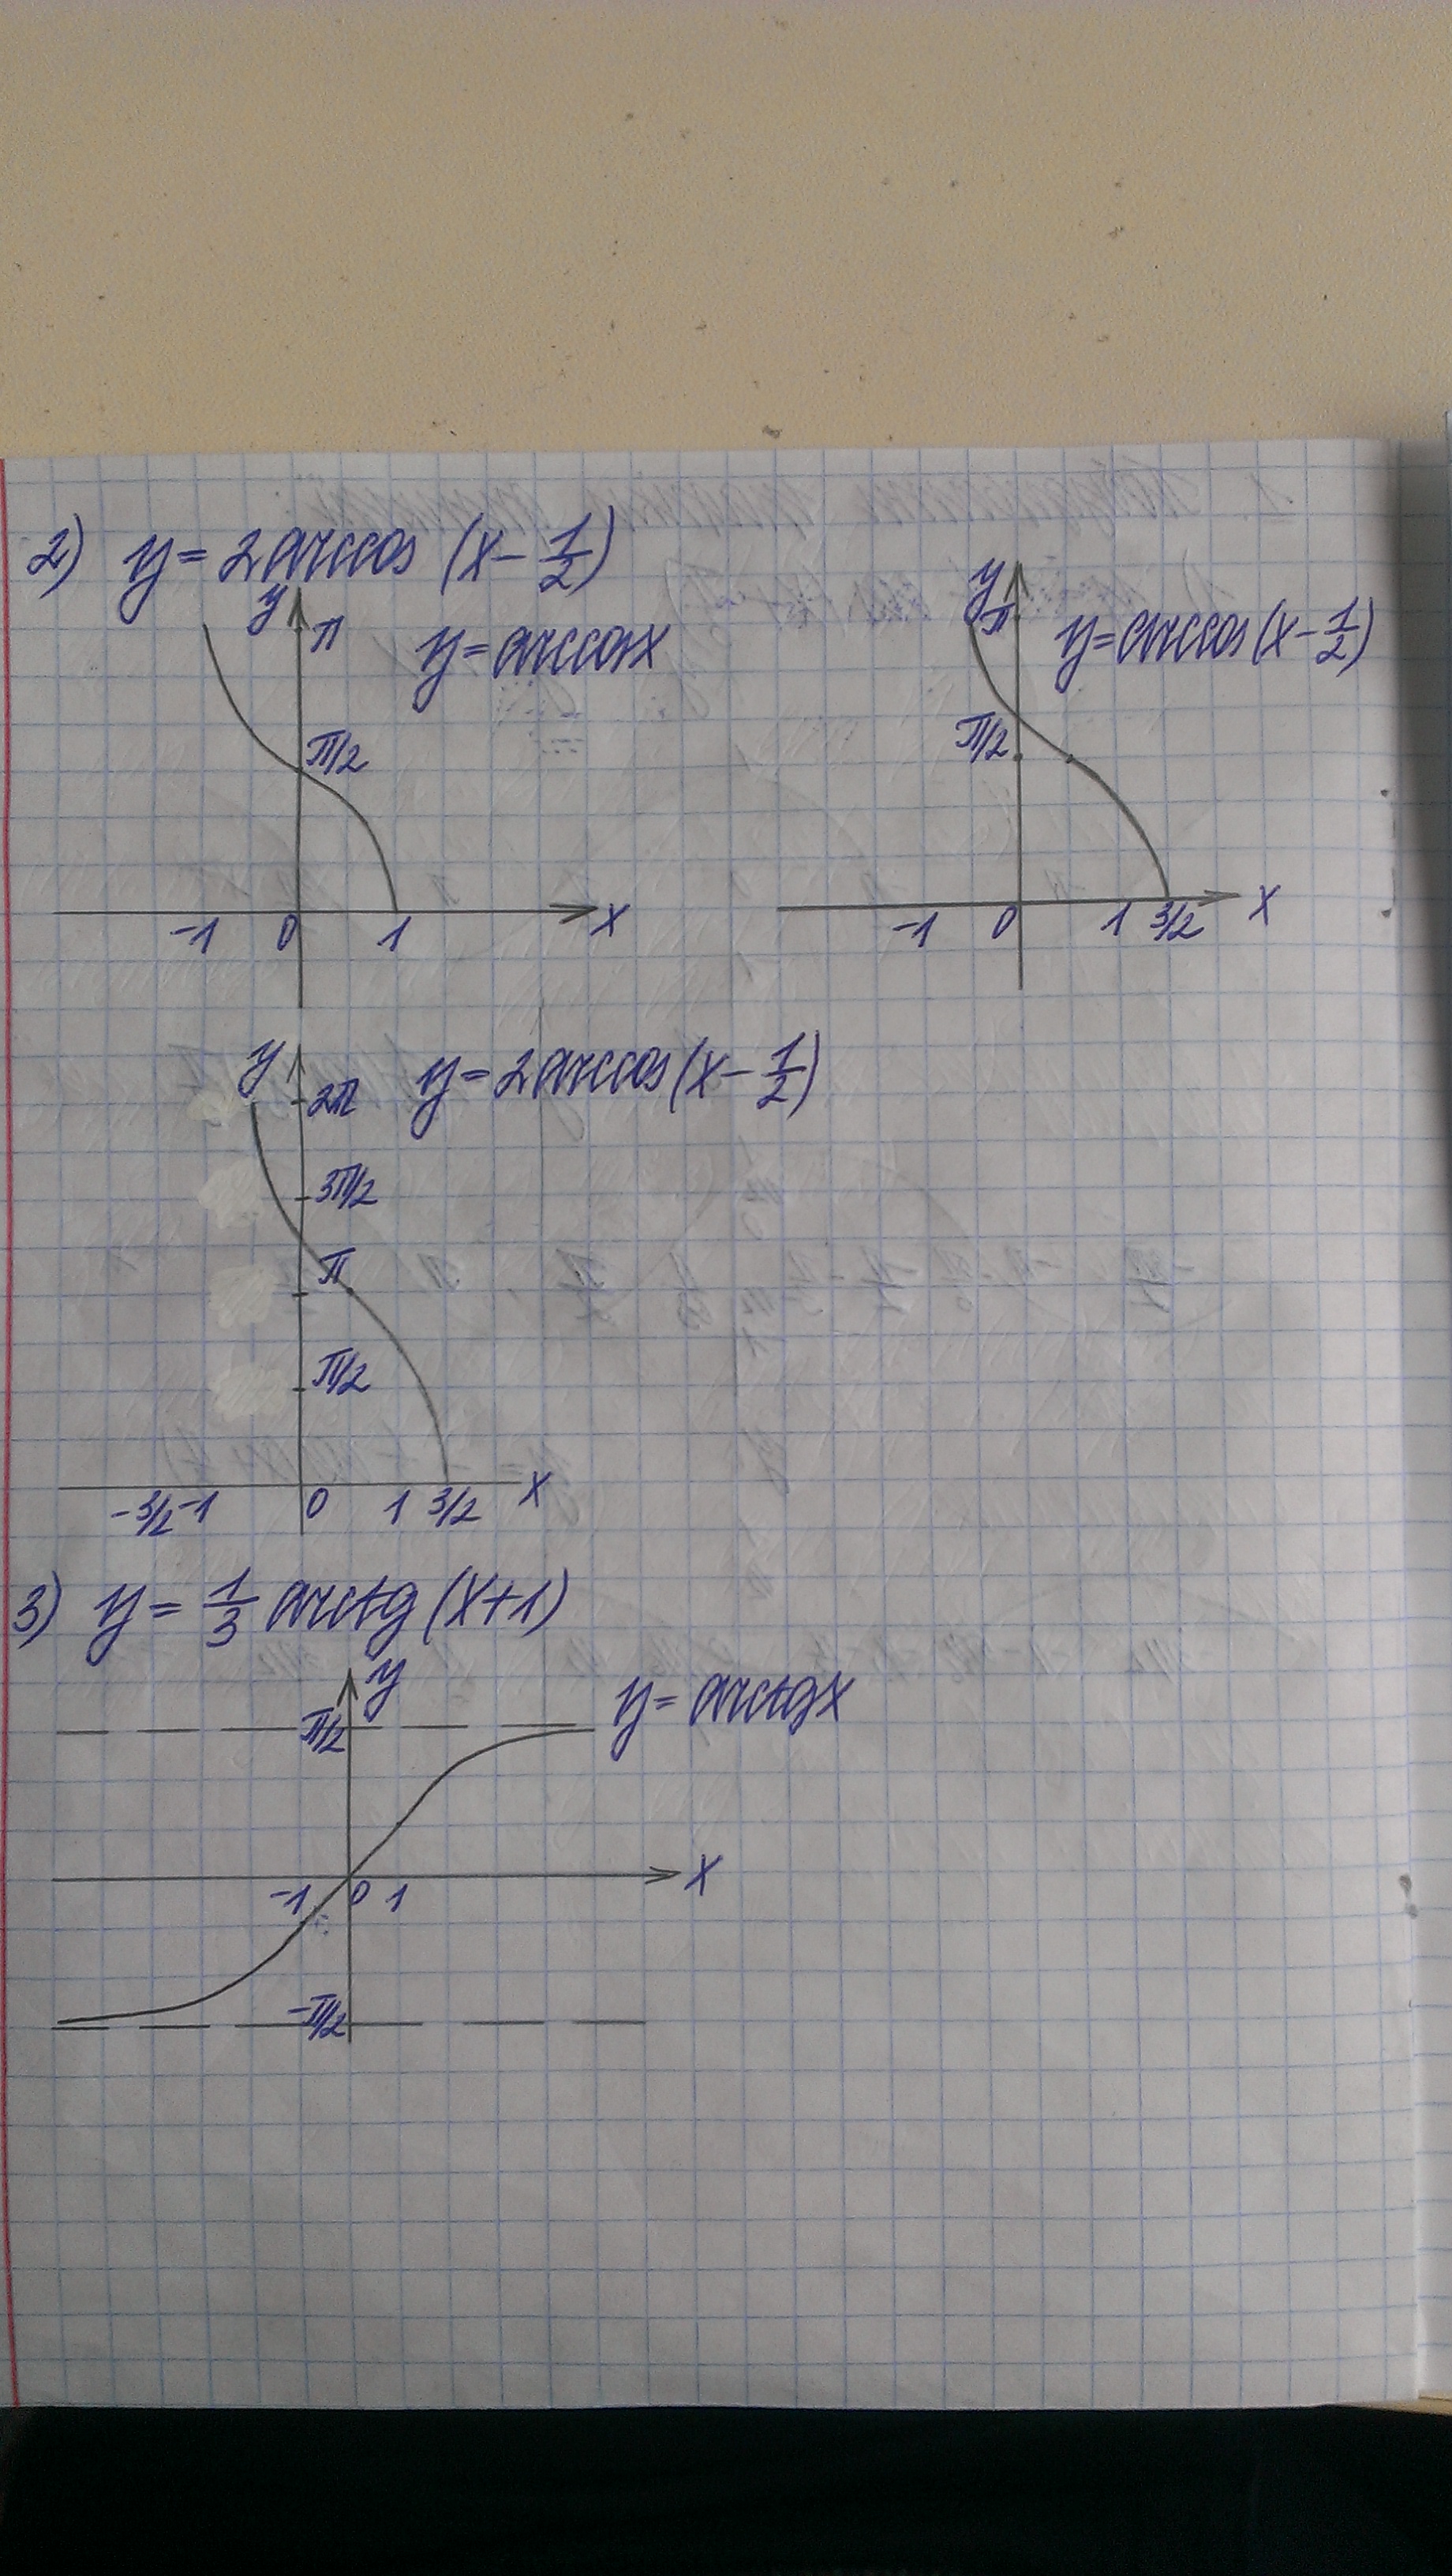 2) y = 2 arccos (x - 1/2)
y
π
y = arccos x
π/2
-1 0 1 x
y
π
y = arccos (x - 1/2)
π/2
-1 0 1 3/2 x
y
2π
y = 2 arccos (x - 1/2)
3π/2
π
π/2
-3/2 -1 0 1 3/2 x
3) y = 1/3 arctg (x+1)
y
π/2
y = arctg x
-1 0 1 x
-π/2